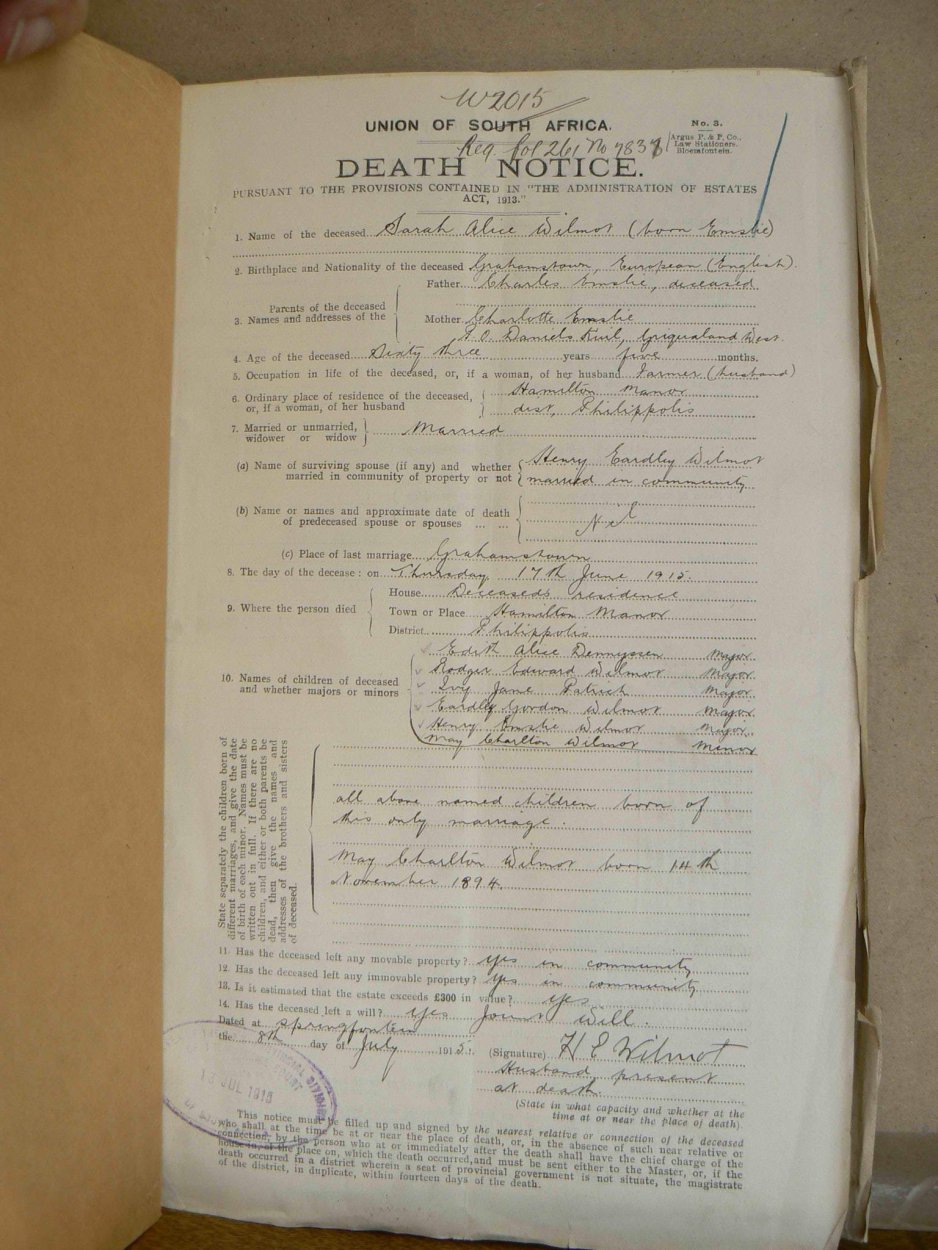 W2015
UNION OF SOUTH AFRICA.
No. 3.
Argus P. & P. Co.,
Law Stationers.
Bloemfontein.
Reg fol 261 No 7837
DEATH NOTICE.
PURSUANT TO THE PROVISIONS CONTAINED IN "THE ADMINISTRATION OF ESTATES
ACT, 1913."
1. Name of the deceased Sarah Alice Wilmot (born Emslie)
2. Birthplace and Nationality of the deceased Grahamstown, European (English).
Father Charles Emslie, deceased
Parents of the deceased
3. Names and addresses of the
Mother Charlotte Emslie
P.O. Daniels Kuil, Griqualand West
4. Age of the deceased Sixty three years five months.
5. Occupation in life of the deceased, or, if a woman, of her husband Farmer (husband)
6. Ordinary place of residence of the deceased, Hamilton Manor
or, if a woman, of her husband dist, Philippolis
7. Married or unmarried, Married
widower or widow
(a) Name of surviving spouse (if any) and whether Henry Eardley Wilmot
married in community of property or not married in community
(b) Name or names and approximate date of death
of predeceased spouse or spouses ... ... Nil
(c) Place of last marriage Grahamstown
8. The day of the decease: on Thursday 17th June 1915.
House Deceased's residence
9. Where the person died Town or Place Hamilton Manor
District Philippolis
Edith Alice Dennyssen Major
Rodger Edward Wilmot Major
10. Names of children of deceased Ivy Jane Patrick Major
and whether majors or minors Eardley Gordon Wilmot Major
Henry Emslie Wilmot Major
May Charlton Wilmot Minor
State separately the children born of
different marriages, and give the date
of birth of each minor. Names must be
written out in full. If there are no
children, and either or both parents be
dead, then give the names and
addresses of the brothers and sisters
of deceased.
all above named children born of
this only marriage.
May Charlton Wilmot born 14th
November 1894.
11. Has the deceased left any movable property? yes in community
12. Has the deceased left any immovable property? yes in community
13. Is it estimated that the estate exceeds £300 in value? yes
14. Has the deceased left a will? yes Joint Will.
Dated at Springfontein
the 8th day of July 1915.
(Signature) H E Wilmot
Husband, present
at death
(State in what capacity and whether at the
time at or near the place of death)
JUL 1915
This notice must be filled up and signed by the nearest relative or connection of the deceased
who shall at the time be at or near the place of death, or, in the absence of such near relative or
connection, by the person who at or immediately after the death shall have the chief charge of the
house in, or the place on, which the death occurred, and must be sent either to the Master, or, if the
death occurred in a district wherein a seat of provincial government is not situate, the magistrate
of the district, in duplicate, within fourteen days of the death.